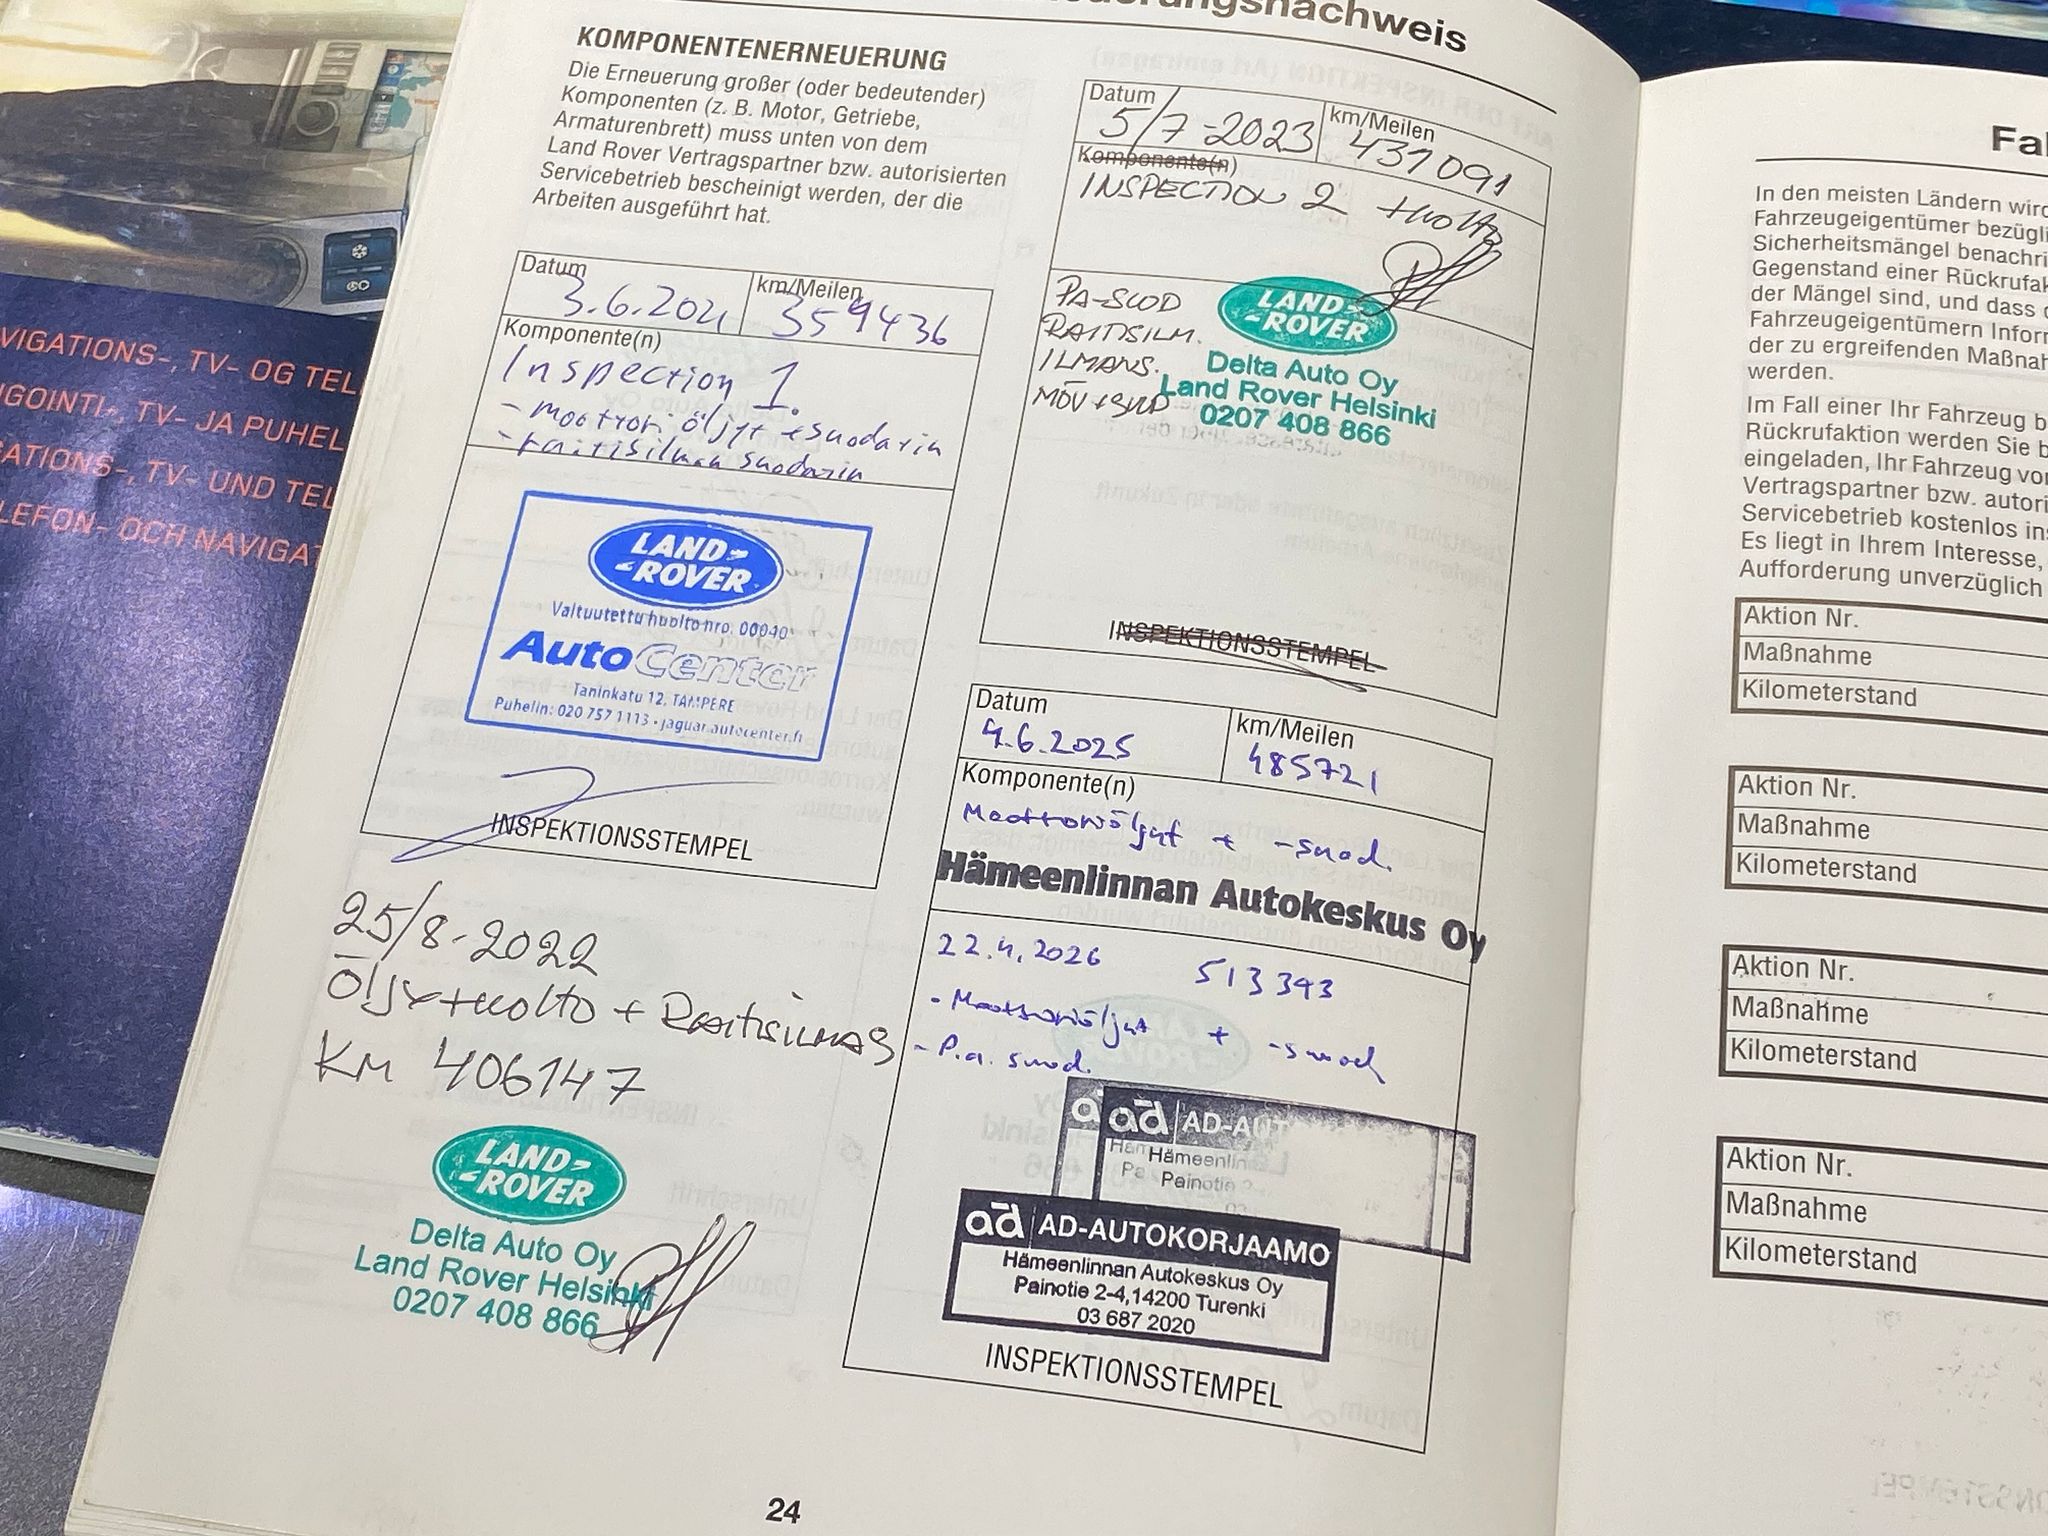 VIGATIONS-, TV- OG TEL
IGOINTI-, TV- JA PUHEL
ATIONS-, TV- UND TEL
LEFON- OCH NAVIGAT
KOMPONENTENERNEUERUNG
Die Erneuerung großer (oder bedeutender)
Komponenten (z. B. Motor, Getriebe,
Armaturenbrett) muss unten von dem
Land Rover Vertragspartner bzw. autorisierten
Servicebetrieb bescheinigt werden, der die
Arbeiten ausgeführt hat.
Datum
3.6.2021
km/Meilen
359436
Komponente(n)
Inspection 1.
- moottori öljyt + suodatin
- raitisilman suodatin
LAND-
-ROVER
Valtuutettu huolto nro. 00040
AutoCenter
Taninkatu 12, TAMPERE
Puhelin: 020 757 1113 - jaguar.autocenter.fi
INSPEKTIONSSTEMPEL
25/8-2022
Öljy+huolto + Raitisilmas
KM 406147
LAND-
-ROVER
Delta Auto Oy
Land Rover Helsinki
0207 408 866
24
uerungsnachweis
Datum
5/7-2023
km/Meilen
431091
Komponente(n)
INSPECTION 2 +huolto
PA-SUOD
RAITISILM.
ILMANS.
MÖV+SUOD
LAND-
-ROVER
Delta Auto Oy
Land Rover Helsinki
0207 408 866
INSPEKTIONSSTEMPEL
Datum
4.6.2025
km/Meilen
485721
Komponente(n)
Moottoriöljyt + -suod.
Hämeenlinnan Autokeskus Oy
22.4.2026 513393
- Moottoriöljyt + -suod
- P.a. suod.
ad AD-AUT
Hämeenlin
Painotie 2
ad AD-AUTOKORJAAMO
Hämeenlinnan Autokeskus Oy
Painotie 2-4,14200 Turenki
03 687 2020
INSPEKTIONSSTEMPEL
Fa
In den meisten Ländern wird
Fahrzeugeigentümer bezügli
Sicherheitsmängel benachri
Gegenstand einer Rückrufak
der Mängel sind, und dass d
Fahrzeugeigentümern Inform
der zu ergreifenden Maßnah
werden.
Im Fall einer Ihr Fahrzeug b
Rückrufaktion werden Sie b
eingeladen, Ihr Fahrzeug vo
Vertragspartner bzw. autori
Servicebetrieb kostenlos ins
Es liegt in Ihrem Interesse,
Aufforderung unverzüglich
Aktion Nr.
Maßnahme
Kilometerstand
Aktion Nr.
Maßnahme
Kilometerstand
Aktion Nr.
Maßnahme
Kilometerstand
Aktion Nr.
Maßnahme
Kilometerstand